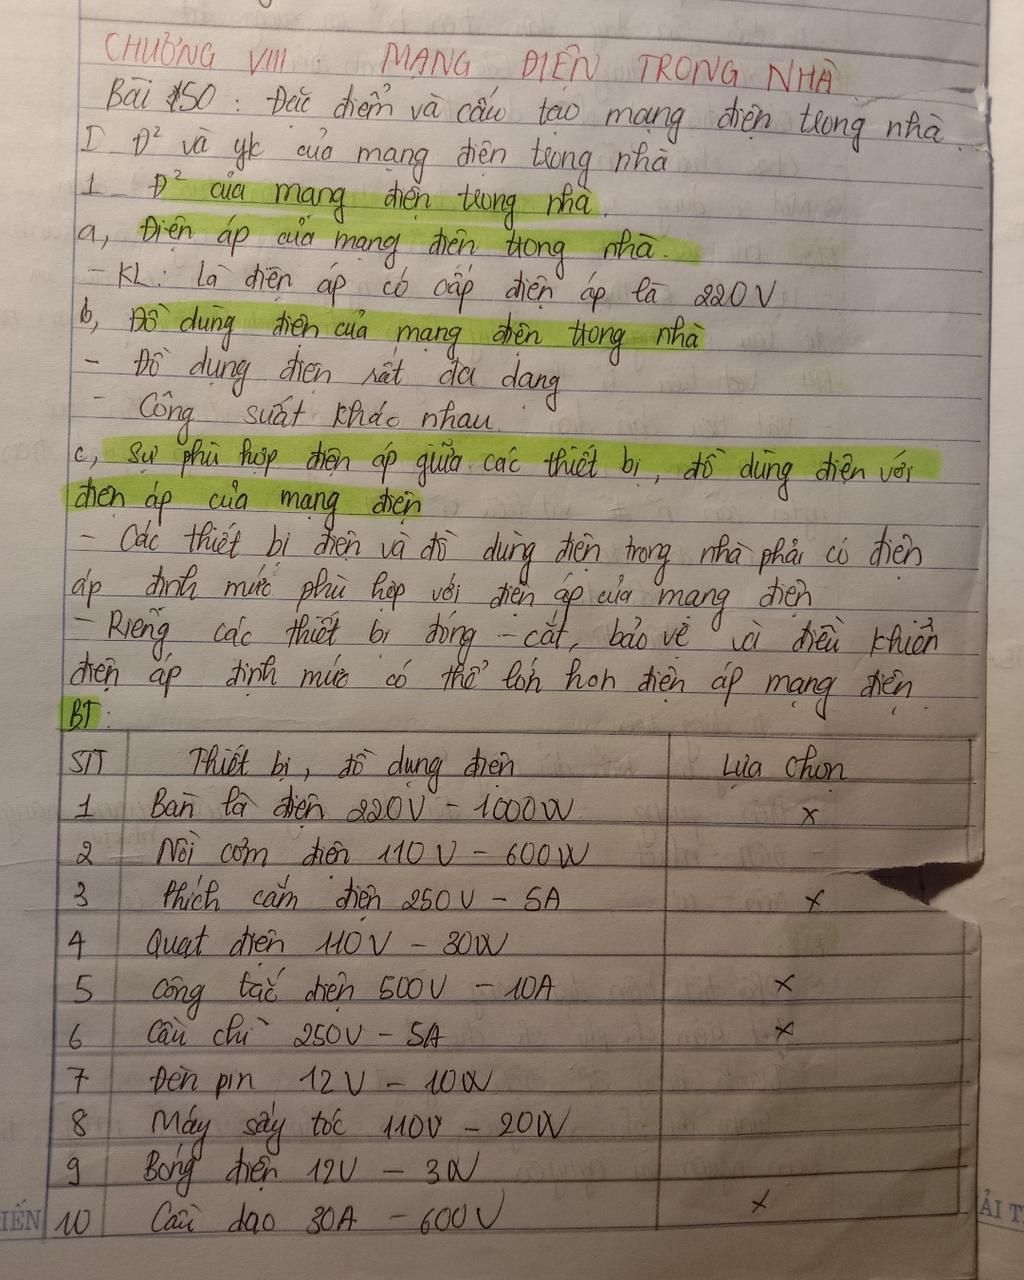 CHƯƠNG VIII : MẠNG ĐIỆN TRONG NHÀ
Bài 50 : Đặc điểm và cấu tạo mạng điện trong nhà.
I Đ² và yc của mạng điện trong nhà
1 Đ² của mạng điện trong nhà.
a, Điện áp của mạng điện trong nhà.
- KL: Là điện áp có cấp điện áp là 220V
b, Đồ dùng điện của mạng điện trong nhà
- Đồ dụng điện rất đa dạng
- Công suất khác nhau.
c, Sự phù hợp điện áp giữa các thiết bị, đồ dùng điện với
điện áp của mạng điện
- Các thiết bị điện và đồ dùng điện trong nhà phải có điện
áp định mức phù hợp với điện áp của mạng điện
- Riêng các thiết bị đóng - cắt, bảo vệ và điều khiển
điện áp định mức có thể lớn hơn điện áp mạng điện.
BT:
STT Thiết bị, đồ dụng điện Lựa chọn
1 Bàn là điện 220V - 1000W x
2 Nồi cơm điện 110V - 600W
3 Phích cắm điện 250V - 5A x
4 Quạt điện 110V - 30W
5 Công tắc điện 500V - 10A x
6 Cầu chì 250V - 5A x
7 Đèn pin 12V - 10W
8 Máy sấy tóc 110V - 20W
9 Bóng điện 12V - 3W
10 Cầu dao 30A - 600V x
IẾN
ẢI T